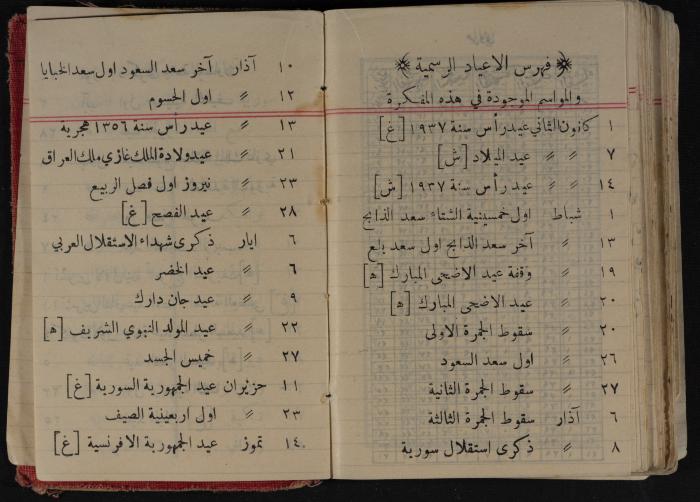 فهرس الاعياد الرسمية
والمواسم الموجودة في هذه المفكرة
١ كانون الثاني عيد رأس سنة ١٩٣٧ [غ]
٧ 〃 〃 عيد الميلاد [ش]
١٤ 〃 〃 عيد رأس سنة ١٩٣٧ [ش]
١ شباط اول خمسينية الشتاء سعد الذابح
١٣ 〃 آخر سعد الذابح اول سعد بلع
١٩ 〃 وقفة عيد الاضحى المبارك [ﻫ]
٢٠ 〃 عيد الاضحى المبارك [ﻫ]
٢٠ 〃 سقوط الجمرة الاولى
٢٦ 〃 اول سعد السعود
٢٧ 〃 سقوط الجمرة الثانية
٦ آذار سقوط الجمرة الثالثة
٨ 〃 ذكرى استقلال سورية
١٠ آذار آخر سعد السعود اول سعد الخبايا
١٢ 〃 اول الحسوم
١٣ 〃 عيد رأس سنة ١٣٥٦ هجرية
٢١ 〃 عيد ولادة الملك غازي ملك العراق
٢٣ 〃 نيروز اول فصل الربيع
٢٨ 〃 عيد الفصح [غ]
٦ ايار ذكرى شهداء الاستقلال العربي
٦ 〃 عيد الخضر
٩ 〃 عيد جان دارك
٢٢ 〃 عيد المولد النبوي الشريف [ﻫ]
٢٧ 〃 خميس الجسد
١١ حزيران عيد الجمهورية السورية [غ]
٢٣ 〃 اول اربعينية الصيف
١٤ تموز عيد الجمهورية الافرنسية [غ]